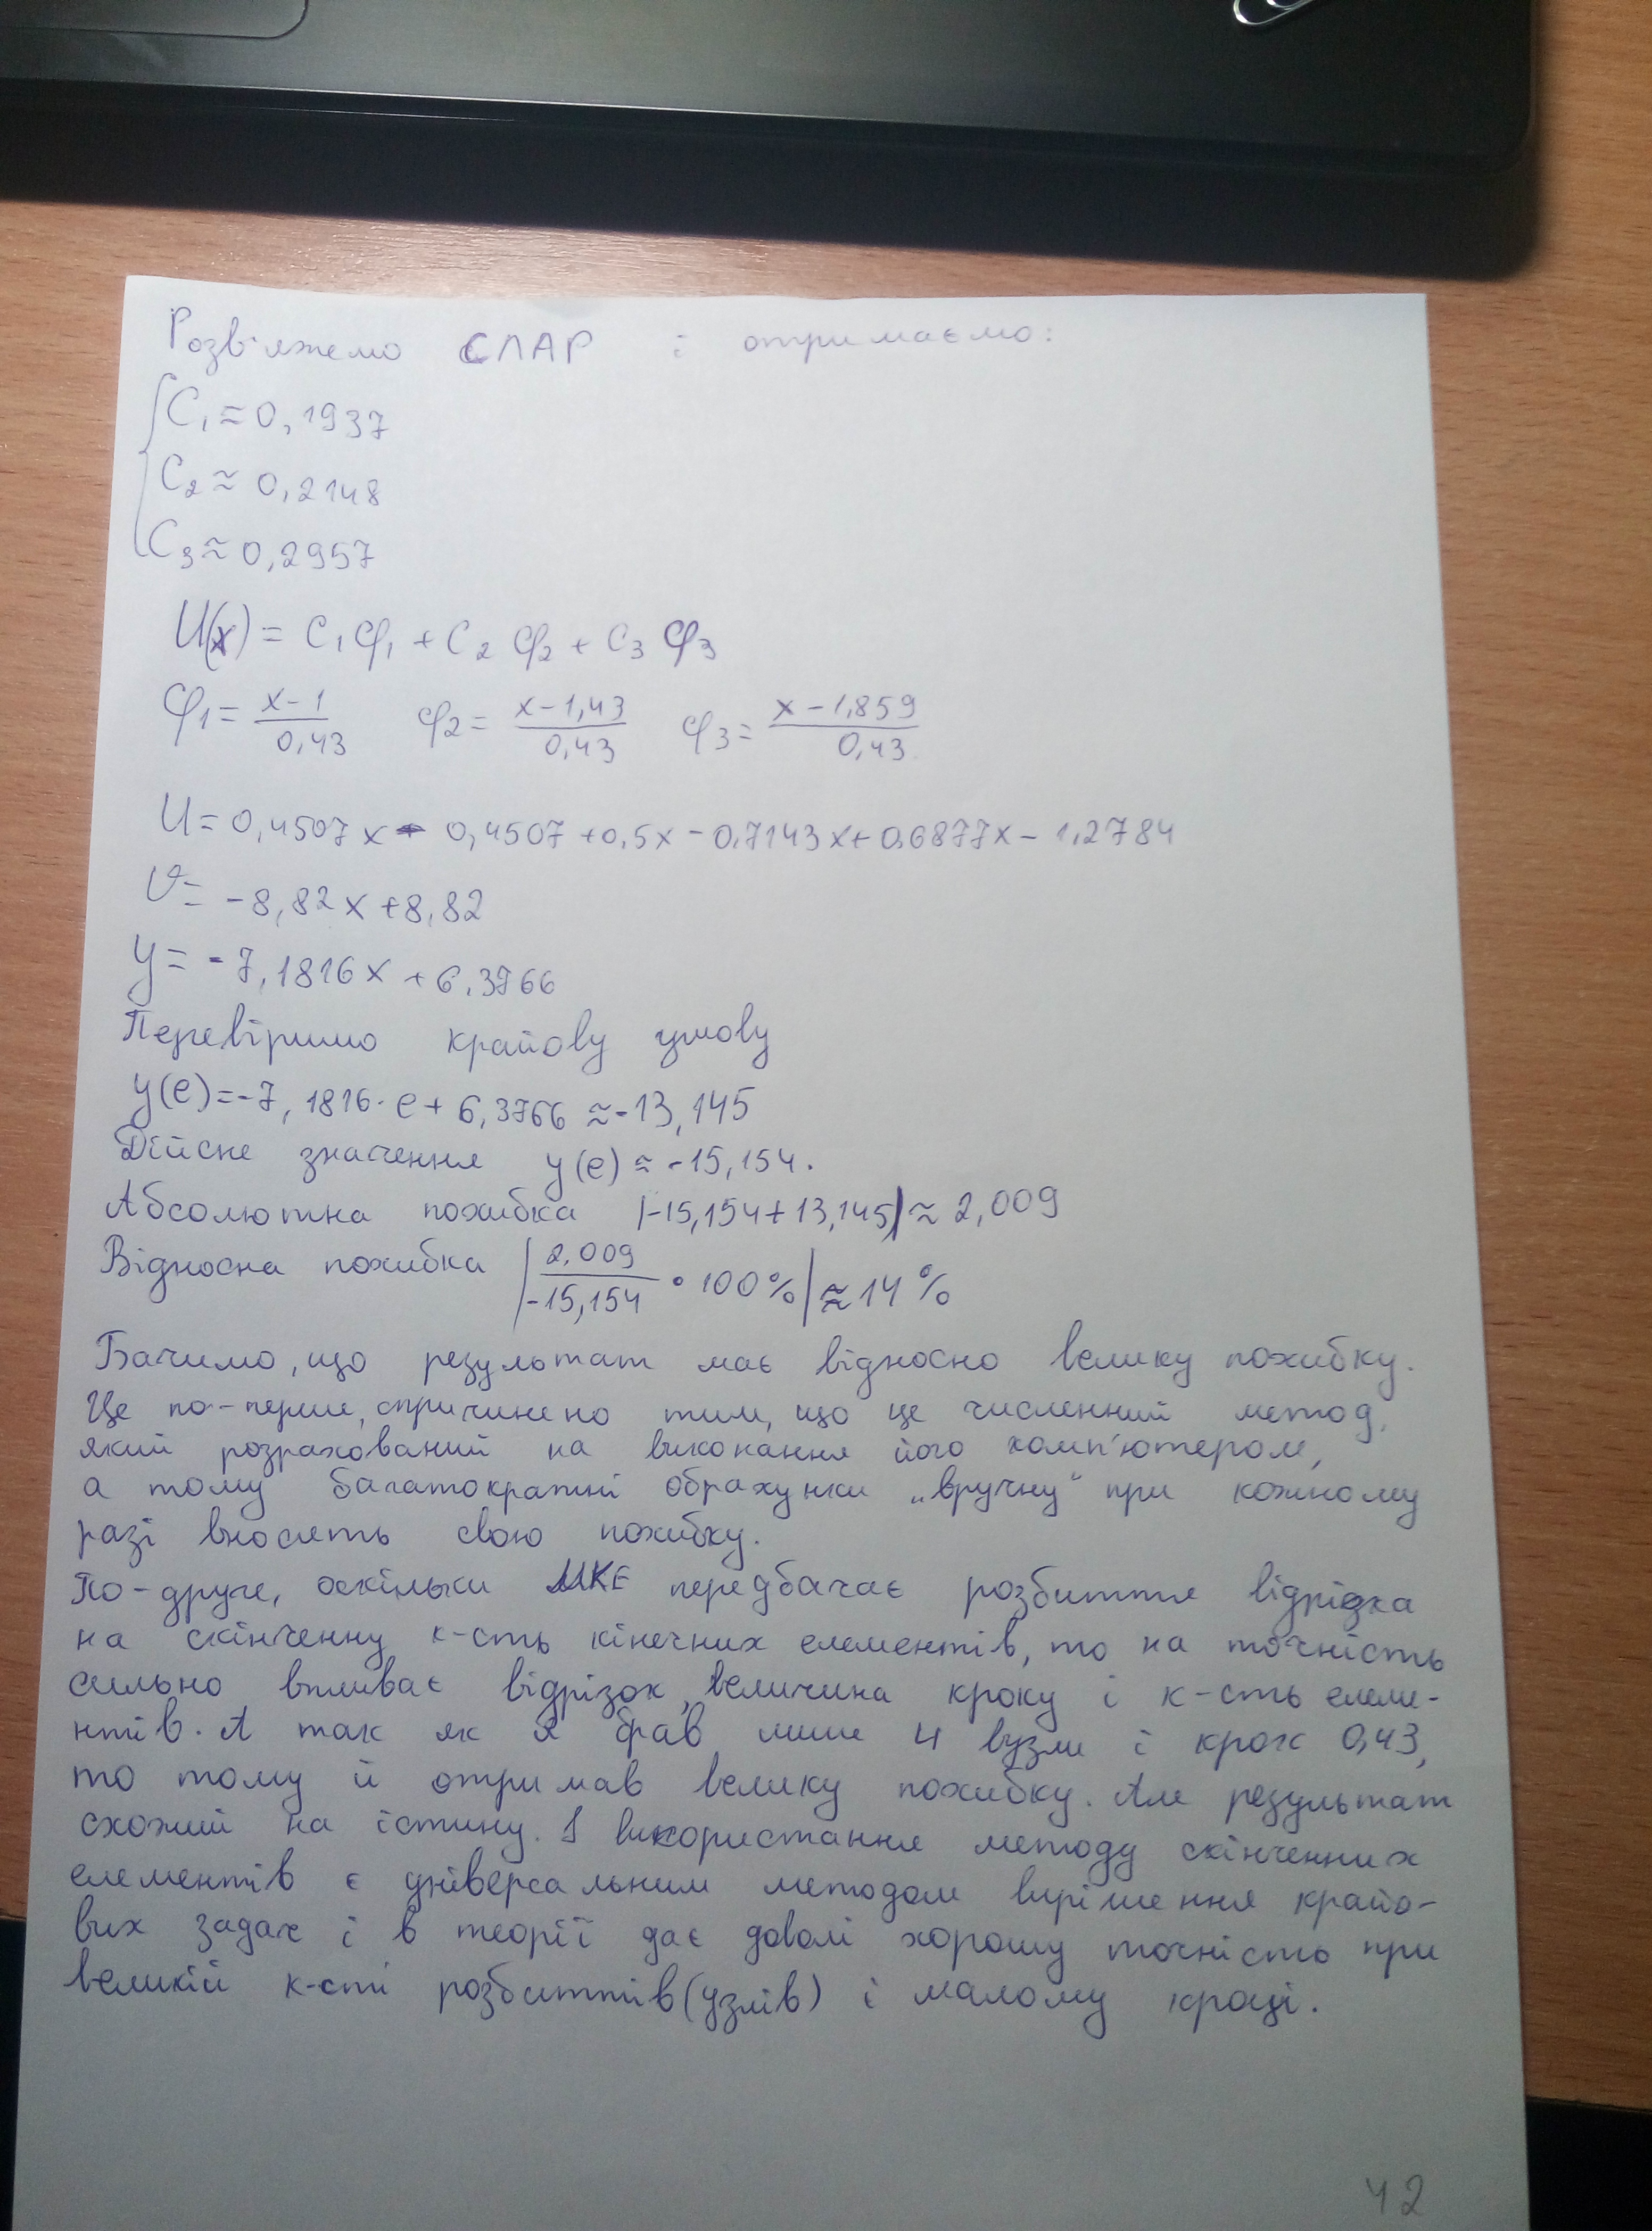 Розв'яжемо СЛАР і отримаємо:
C₁ ≈ 0,1937
C₂ ≈ 0,2148
C₃ ≈ 0,2957
U(x) = C₁φ₁ + C₂φ₂ + C₃φ₃
φ₁ = (x-1)/0,43 φ₂ = (x-1,43)/0,43 φ₃ = (x-1,859)/0,43
U = 0,4507x - 0,4507 + 0,5x - 0,7143x + 0,6877x - 1,2784
V = -8,82x + 8,82
y = -7,1816x + 6,3766
Перевіримо крайову умову
y(e) = -7,1816·e + 6,3766 ≈ -13,145
Дійсне значення y(e) ≈ -15,154.
Абсолютна похибка |-15,154+13,145| ≈ 2,009
Відносна похибка |2,009/-15,154 · 100%| ≈ 14%
Бачимо, що результат має відносно велику похибку.
Це по-перше, спричинено тим, що це численний метод,
який розрахований на виконання його комп'ютером,
а тому багатократні обрахунки „вручну" при кожному
разі вносять свою похибку.
По-друге, оскільки МКЕ передбачає розбиття відрізка
на скінченну к-сть кінечних елементів, то на точність
сильно впливає відрізок, величина кроку і к-сть елеме-
нтів. А так як я брав лише 4 вузли і крок 0,43,
то тому й отримав велику похибку. Але результат
схожий на істину. І використання методу скінченних
елементів є універсальним методом вирішення крайо-
вих задач і в теорії дає доволі хорошу точність при
великій к-сті розбиттів (узлів) і малому кроці.
42